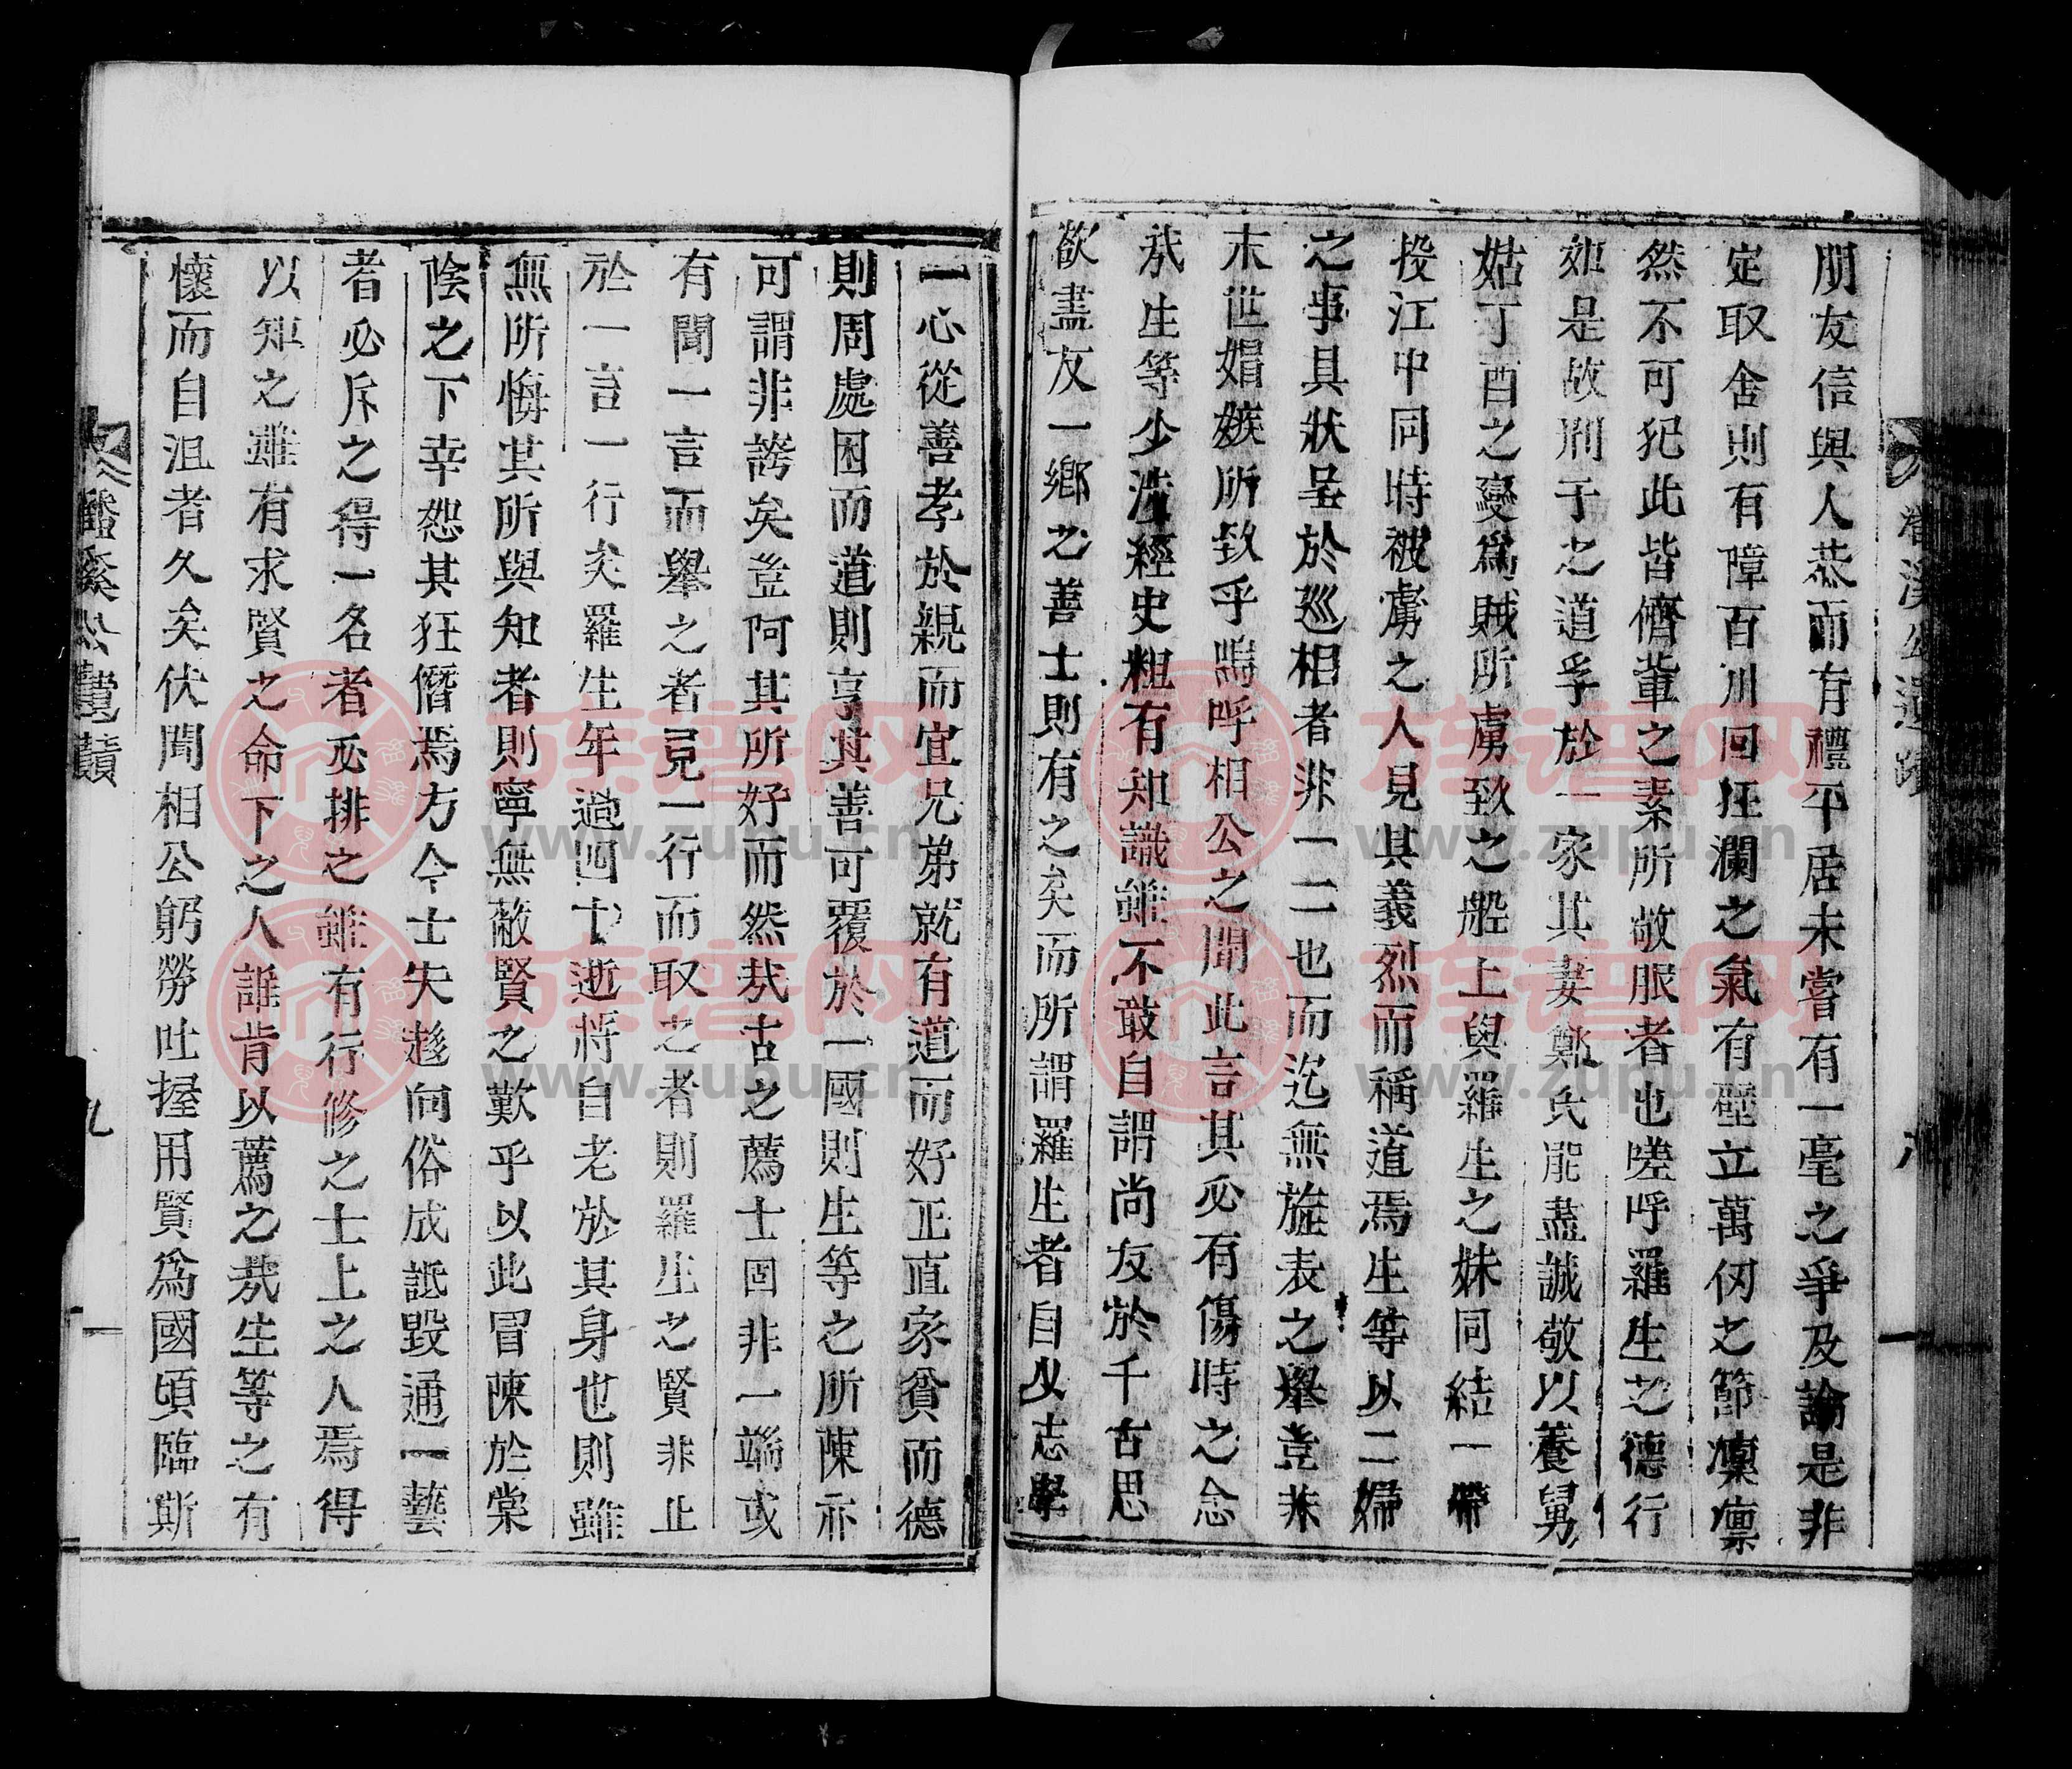 朋友信與人恭而有禮平居未嘗有一毫之爭及論是非
定取舍則有障百川回狂瀾之氣有壁立萬仞之節凜凜
然不可犯此皆儕輩之素所敬服者也嗟呼羅生之德行
如是故刑于之道孚於一家其妻鄭氏能盡誠敬以養舅
姑丁酉之變爲賊所虜致之船上與羅生之妹同結一帶
投江中同時被虜之人見其義烈而稱道焉生等以二婦
之事具狀呈於巡相者非一二也而迄無旌表之擧豈非
末世媢嫉所致乎嗚呼相公之聞此言其必有傷時之念
哉生等少涉經史粗有知識雖不敢自謂尙友於千古思
欲盡友一鄕之善士則有之矣而所謂羅生者自少志學
一心從善孝於親而宜兄弟就有道而好正直家貧而德
則周處困而道則亨其善可覆於一國則生等之所陳亦
可謂非謗矣豈阿其所好而然哉古之薦士固非一端或
有聞一言而擧之者見一行而取之者則羅生之賢非止
於一言一行矣羅生年過四十逝將自老於其身也則雖
無所悔其所與知者則寧無蔽賢之歎乎以此冒陳於棠
陰之下幸恕其狂僭焉方今士失趍向俗成詆毁通一藝
者必斥之得一名者必排之雖有行修之士上之人焉得
以知之雖有求賢之命下之人誰肯以薦之哉生等之有
懷而自沮者久矣伏聞相公躬勞吐握用賢爲國頃臨斯
九